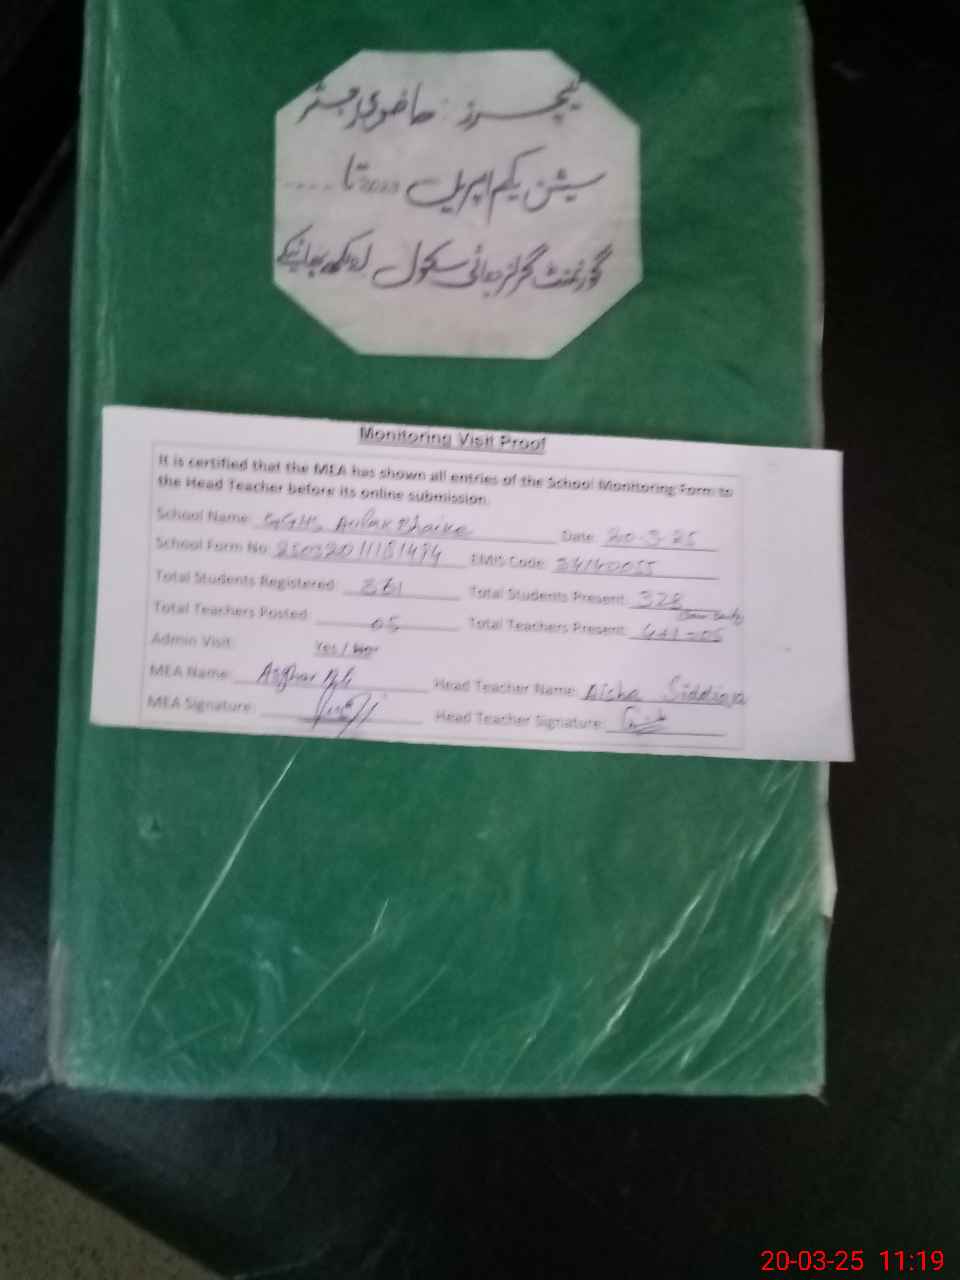 ٹیچرز حاضری رجسٹر
سیشن یکم اپریل 2023 تا ....
گورنمنٹ گرلز ہائی سکول اولکھ بھائیکے
Monitoring Visit Proof
It is certified that the MEA has shown all entries of the School Monitoring Form to
the Head Teacher before its online submission.
School Name: GGHS Aulakh Bhaike Date: 20-3-25
School Form No: EMIS Code: 34140055
Total Students Registered: 361 Total Students Present: 328
Total Teachers Posted: 05 Total Teachers Present: 4+1=05
Admin Visit: Yes / No
MEA Name: Asghar Ali Head Teacher Name: Aisha Siddiqa
MEA Signature: Head Teacher Signature:
20-03-25 11:19